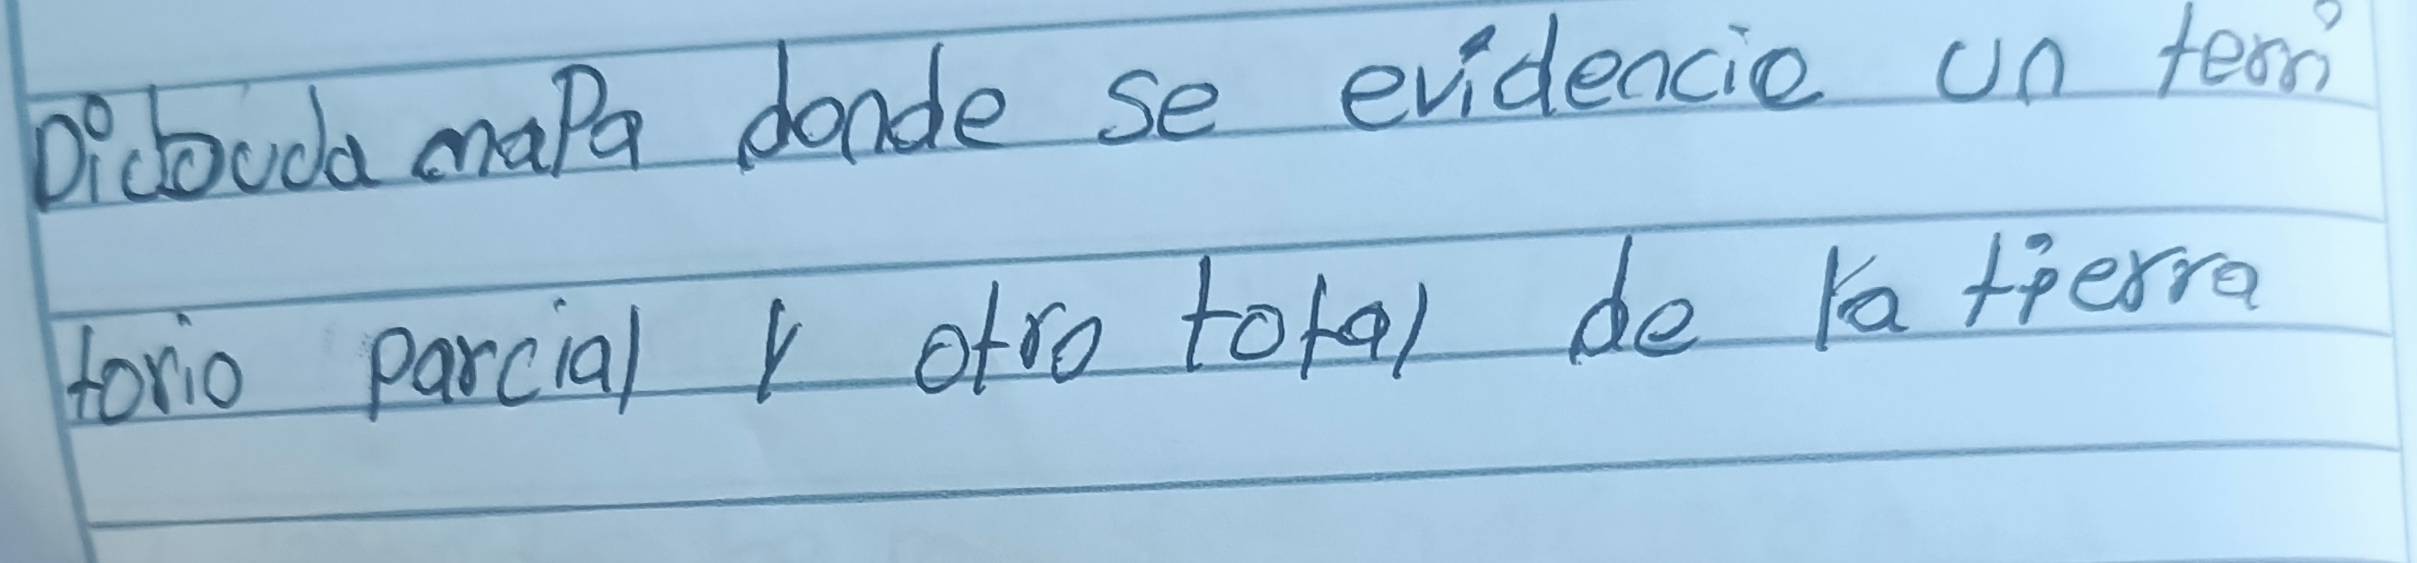 mapa donde se evidencie un terri
torio parcial y otro total de la tierra